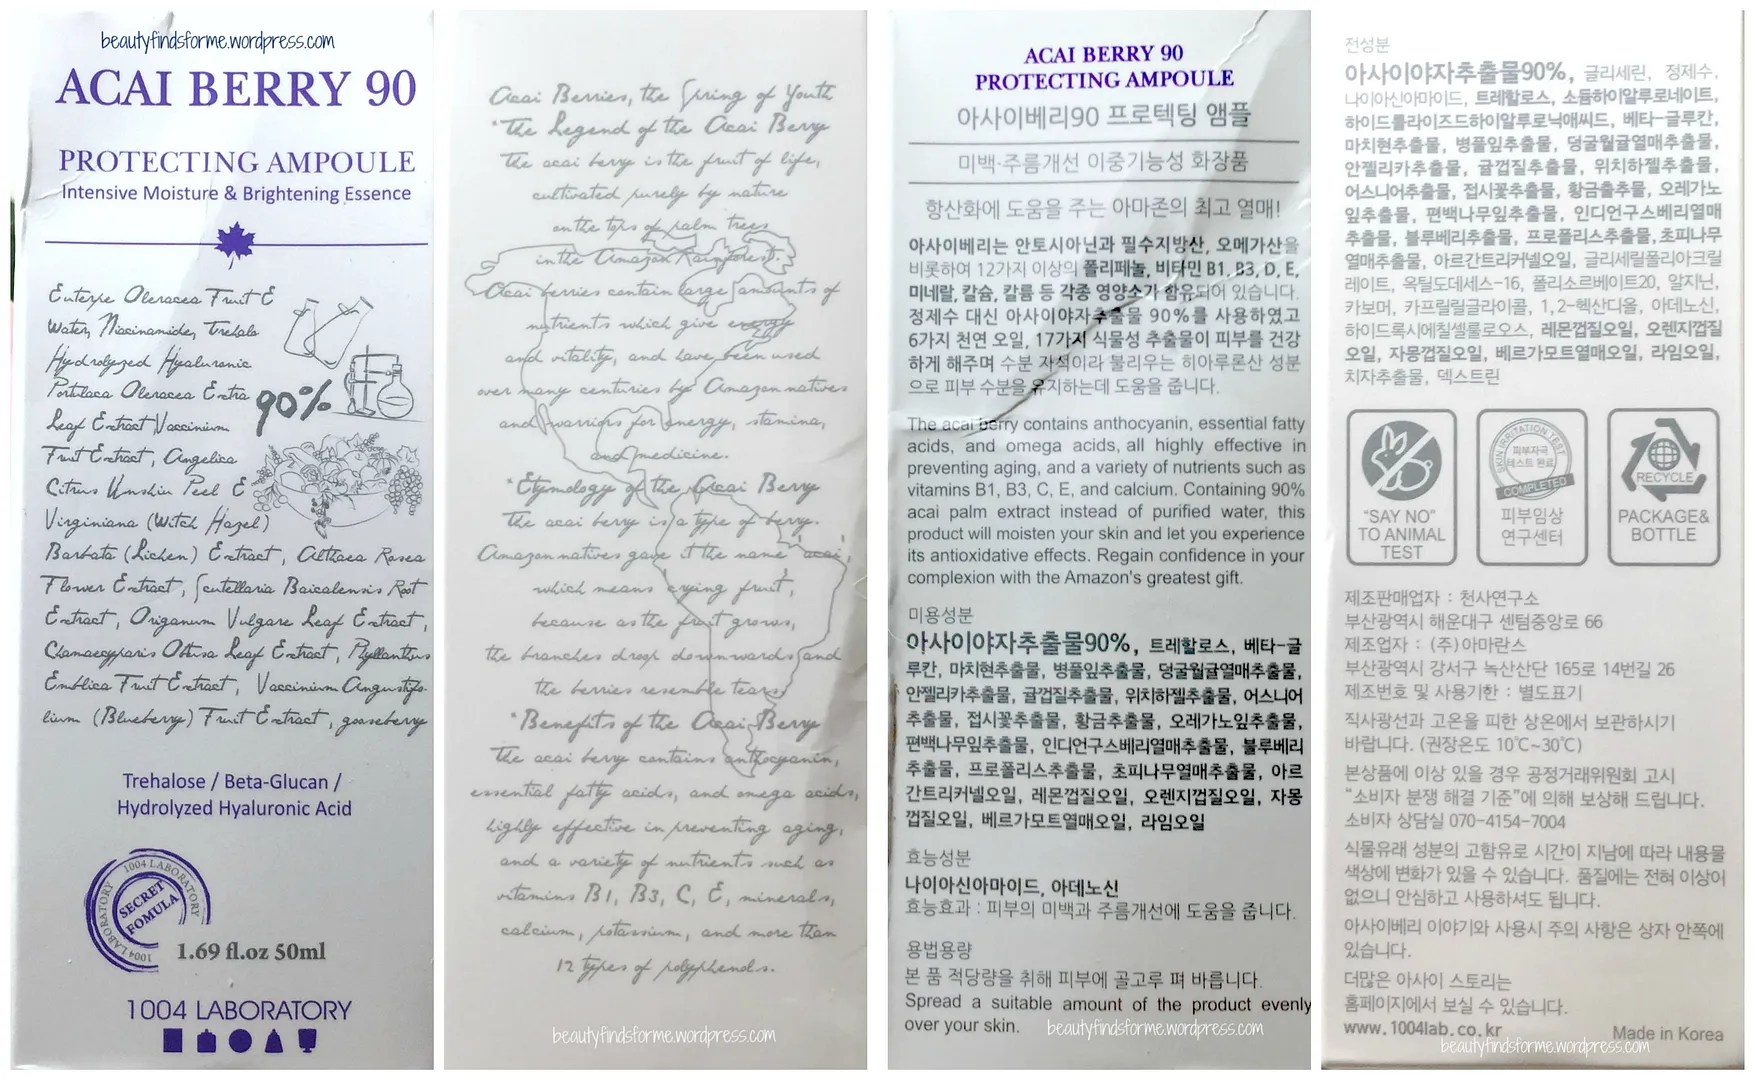 beautyfindsforme.wordpress.com
ACAI BERRY 90
PROTECTING AMPOULE
Intensive Moisture & Brightening Essence
Euterpe Oleracea Fruit E
Water, Niacinamide, Trehalo
Hydrolyzed Hyaluronic
Portulaca Oleracea Extra
90%
Leaf Extract Vaccinium
Fruit Extract, Angelica
Citrus Unshiu Peel E
Virginiana (Witch Hazel)
Barbata (Lichen) Extract, Althaea Rosea
Flower Extract, Scutellaria Baicalensis Root
Extract, Origanum Vulgare Leaf Extract,
Chamaecyparis Obtusa Leaf Extract, Phyllanthus
Emblica Fruit Extract, Vaccinium Angustifo-
lium (Blueberry) Fruit Extract, gooseberry
Trehalose / Beta-Glucan /
Hydrolyzed Hyaluronic Acid
1004 LABORATORY
1004 LABORATORY
1004
SECRET
FOMULA
1.69 fl.oz 50ml
1004 LABORATORY
Acai Berries, the Spring of Youth
"The Legend of the Acai Berry
The acai berry is the fruit of life,
cultivated purely by nature
on the tops of palm trees
in the Amazon Rainforest.
Acai berries contain large amounts of
nutrients which give energy
and vitality, and have been used
over many centuries by Amazon natives
and warriors for energy, stamina,
and medicine.
"Etymology of the Acai Berry
The acai berry is a type of berry.
Amazon natives gave it the name 'acai',
which means crying fruit,
because as the fruit grows,
the branches drop downwards and
the berries resemble tears.
"Benefits of the Acai Berry
The acai berry contains anthocyanin,
essential fatty acids, and omega acids,
highly effective in preventing aging,
and a variety of nutrients such as
vitamins B1, B3, C, E, minerals,
calcium, potassium, and more than
12 types of polyphenols.
beautyfindsforme.wordpress.com
ACAI BERRY 90
PROTECTING AMPOULE
아사이베리90 프로텍팅 앰플
미백·주름개선 이중기능성 화장품
항산화에 도움을 주는 아마존의 최고 열매!
아사이베리는 안토시아닌과 필수지방산, 오메가산을
비롯하여 12가지 이상의 폴리페놀, 비타민 B1, B3, D, E,
미네랄, 칼슘, 칼륨 등 각종 영양소가 함유되어 있습니다.
정제수 대신 아사이야자추출물 90%를 사용하였고
6가지 천연 오일, 17가지 식물성 추출물이 피부를 건강
하게 해주며 수분 자석이라 불리우는 히아루론산 성분
으로 피부 수분을 유지하는데 도움을 줍니다.
The acai berry contains anthocyanin, essential fatty
acids, and omega acids, all highly effective in
preventing aging, and a variety of nutrients such as
vitamins B1, B3, C, E, and calcium. Containing 90%
acai palm extract instead of purified water, this
product will moisten your skin and let you experience
its antioxidative effects. Regain confidence in your
complexion with the Amazon's greatest gift.
미용성분
아사이야자추출물90%, 트레할로스, 베타-글
루칸, 마치현추출물, 병풀잎추출물, 덩굴월귤열매추출물,
안젤리카추출물, 귤껍질추출물, 위치하젤추출물, 어스니어
추출물, 접시꽃추출물, 황금추출물, 오레가노잎추출물,
편백나무잎추출물, 인디언구스베리열매추출물, 블루베리
추출물, 프로폴리스추출물, 초피나무열매추출물, 아르
간트리커넬오일, 레몬껍질오일, 오렌지껍질오일, 자몽
껍질오일, 베르가모트열매오일, 라임오일
효능성분
나이아신아마이드, 아데노신
효능효과 : 피부의 미백과 주름개선에 도움을 줍니다.
용법용량
본 품 적당량을 취해 피부에 골고루 펴 바릅니다.
Spread a suitable amount of the product evenly
over your skin.
beautyfindsforme.wordpress.com
전성분
아사이야자추출물90%, 글리세린, 정제수,
나이아신아마이드, 트레할로스, 소듐하이알루로네이트,
하이드롤라이즈드하이알루로닉애씨드, 베타-글루칸,
마치현추출물, 병풀잎추출물, 덩굴월귤열매추출물,
안젤리카추출물, 귤껍질추출물, 위치하젤추출물,
어스니어추출물, 접시꽃추출물, 황금출추물, 오레가노
잎추출물, 편백나무잎추출물, 인디언구스베리열매
추출물, 블루베리추출물, 프로폴리스추출물,초피나무
열매추출물, 아르간트리커넬오일, 글리세릴폴리아크릴
레이트, 옥틸도데세스-16, 폴리소르베이트20, 알지닌,
카보머, 카프릴릴글라이콜, 1,2-헥산디올, 아데노신,
하이드록시에칠셀룰로오스, 레몬껍질오일, 오렌지껍질
오일, 자몽껍질오일, 베르가모트열매오일, 라임오일,
치자추출물, 덱스트린
"SAY NO"
TO ANIMAL
TEST
SKIN IRRITATION TEST
피부자극
테스트 완료
COMPLETED
피부임상
연구센터
RECYCLE
PACKAGE&
BOTTLE
제조판매업자 : 천사연구소
부산광역시 해운대구 센텀중앙로 66
제조업자 : (주)아마란스
부산광역시 강서구 녹산산단 165로 14번길 26
제조번호 및 사용기한 : 별도표기
직사광선과 고온을 피한 상온에서 보관하시기
바랍니다. (권장온도 10℃~30℃)
본상품에 이상 있을 경우 공정거래위원회 고시
"소비자 분쟁 해결 기준"에 의해 보상해 드립니다.
소비자 상담실 070-4154-7004
식물유래 성분의 고함유로 시간이 지남에 따라 내용물
색상에 변화가 있을 수 있습니다. 품질에는 전혀 이상이
없으니 안심하고 사용하셔도 됩니다.
아사이베리 이야기와 사용시 주의 사항은 상자 안쪽에
있습니다.
더많은 아사이 스토리는
홈페이지에서 보실 수 있습니다.
www.1004lab.co.kr
Made in Korea
beautyfindsforme.wordpress.com